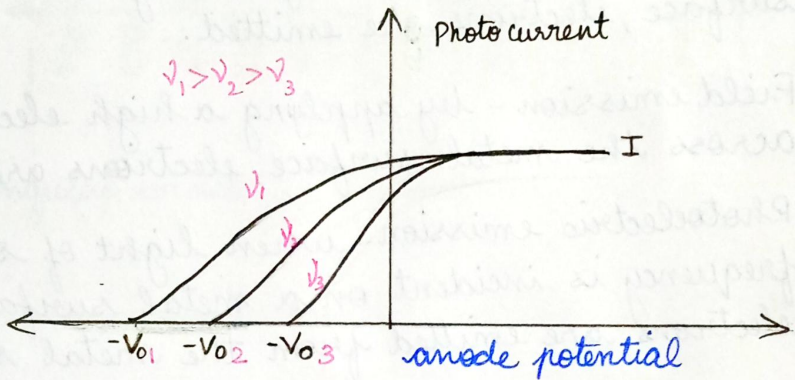 Photo current
ν₁ > ν₂ > ν₃
I
ν₁
ν₂
ν₃
-V₀₁ -V₀₂ -V₀₃ anode potential